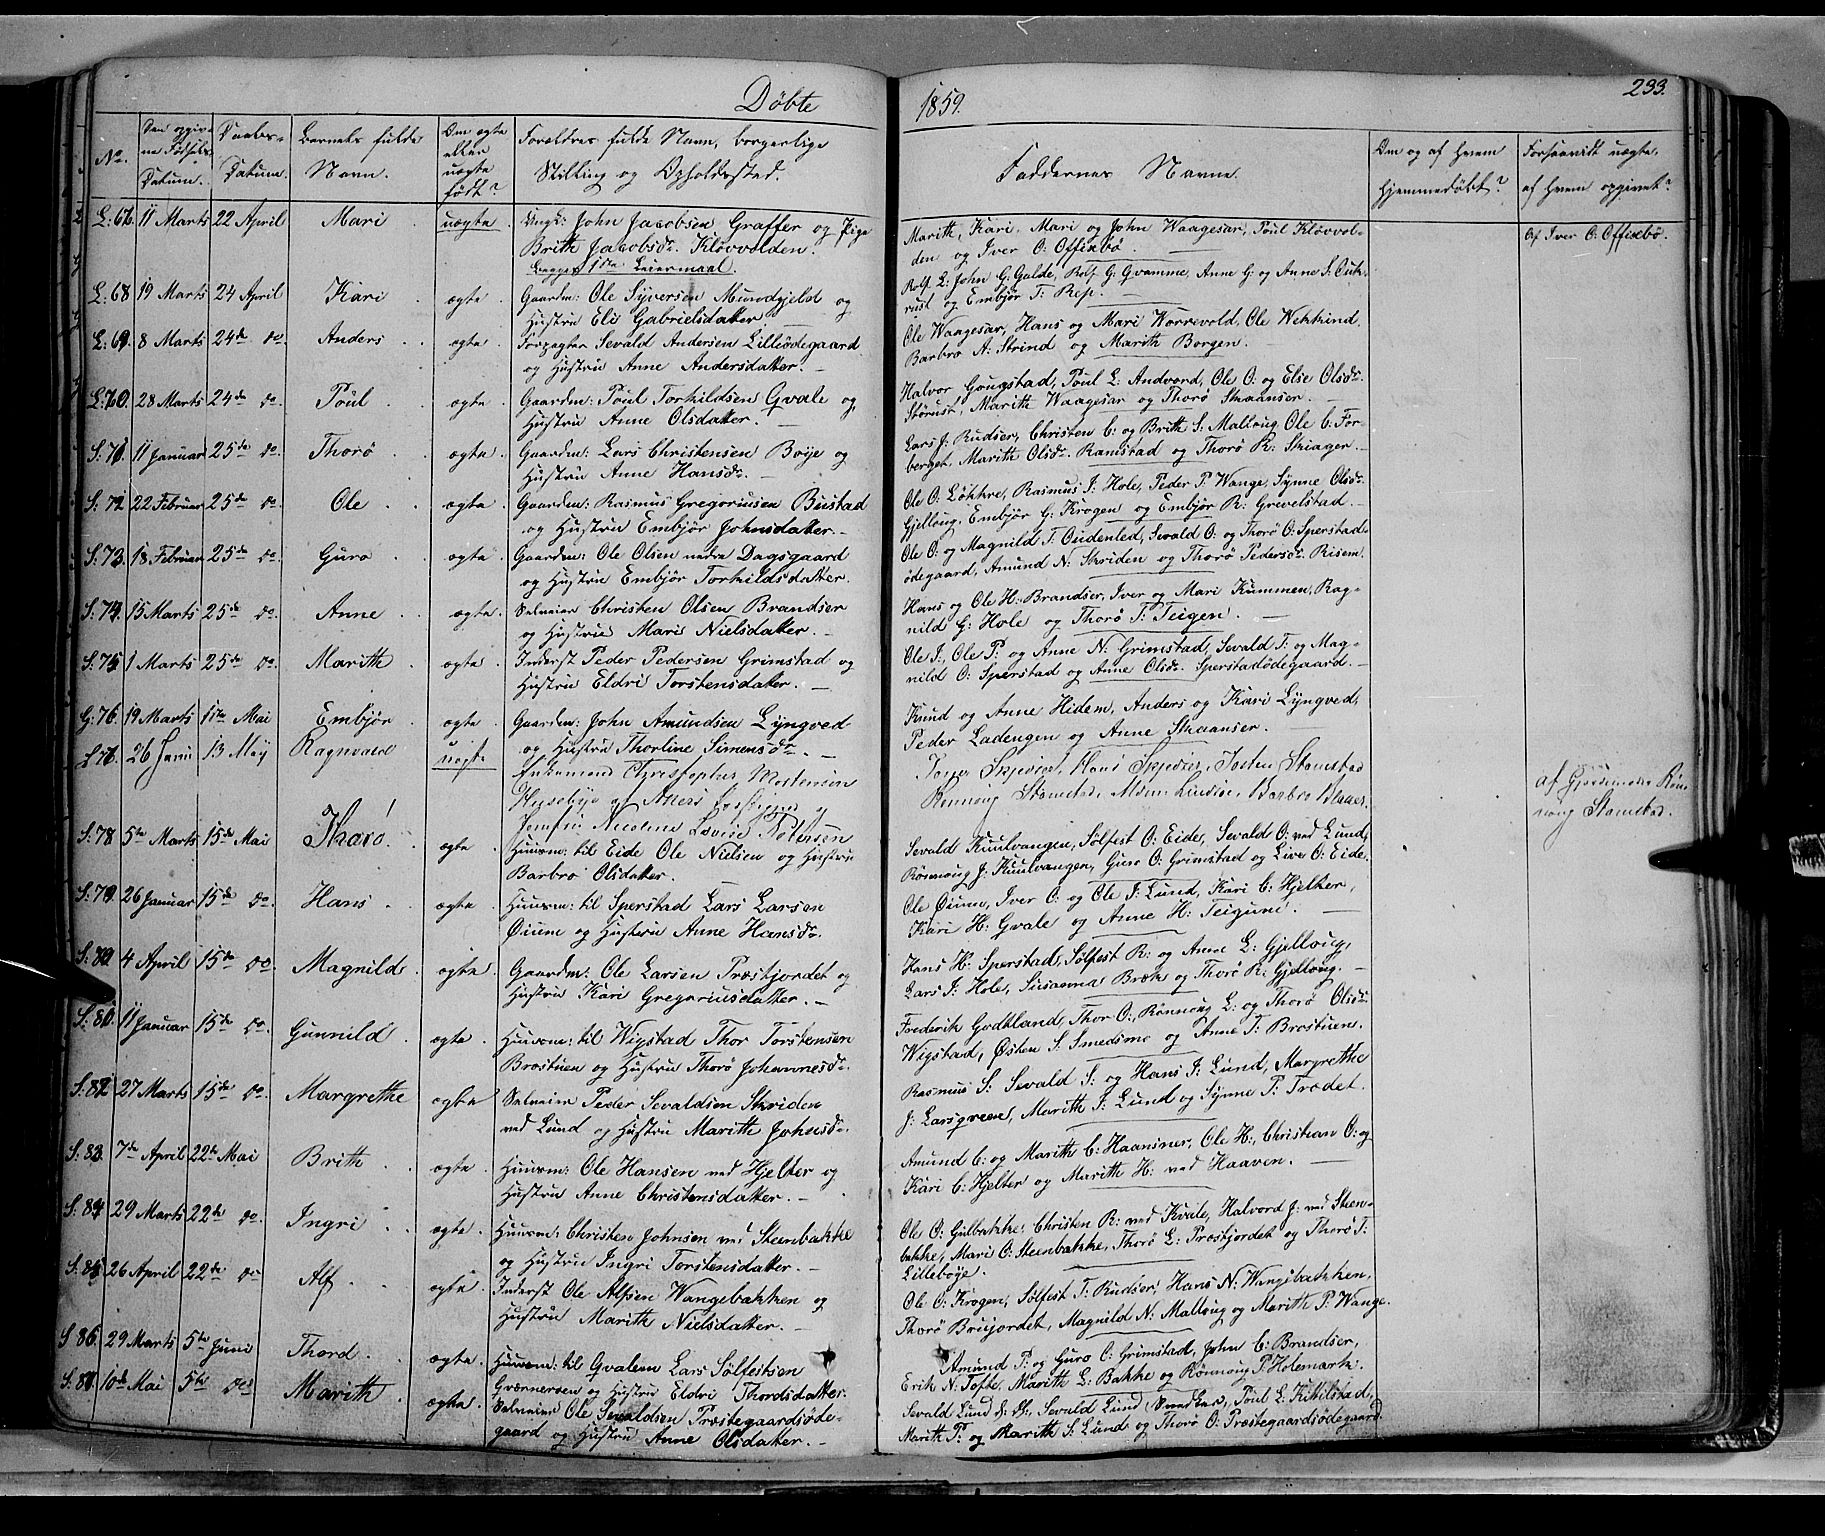 Døbte
1859.
233.
No.
Den opgivne Fødsels Datum.
Daabs-Datum.
Barnets fulde Navn.
Om ægte eller uægte født?
Forældres fulde Navn, borgerlige Stilling og Opholdssted.
Faddernes Navne.
Om og af hvem hjemmedøbt?
Forsaavidt uægte, af hvem opgivet?
L: 67. 11 Marts 22 April Mari uægte Ungk: John Jacobsen Graffer og Pige
Brith Jacobsdr. Kløvvolden.
Begges 1ste Leiermaal.
Marith, Kari, Mari og John Waagesar, Poul Kløvvol-
den og Iver O: Offisebø.
Af Iver O: Offisebø.
L: 68 19 Marts 24 April Kari ægte Gaardm: Ole Syversen Mundgjeld og
Hustru Eli Gabrielsdatter
Rolf L: John G: Galde, Rolf G: Gvamme, Anne G: og Anne S: Out-
rust og Embjør T: Rep.
L: 69 8 Marts 24de do. Anders ægte Forpagter Sevald Andersen Lilleødegaard
og Hustru Anne Andersdatter.
Ole Waagesar, Hans og Mari Worrevold, Ole
Barbro A: Strind og Marith Borgen.
L: 70. 28 Marts 24de do Poul ægte Gaardm: Poul Torkildsen Qvale og
Hustru Anne Olsdatter.
Halvor Gougstad, Poul L: Andvord, Ole O: og Else Olsdr.
Storust, Marith Waagesar og Thorø Staansar.
S: 71. 11 Januar 25de do. Thorø ægte Gaardm: Lars Christensen Bøye og
Hustru Anne Hansdr.
Lars J: Rudser, Christen C: og Brith S: Malloug Ole C: For-
berget, Marith Olsdr. Ramstad og Thorø R: Skiager.
S: 72 22 Februar 25de do. Ole ægte Gaardm: Rasmus Gregoriusen Bustad
og Hustru Embjør Johnsdatter.
Ole O: Løkkre, Rasmus I: Hole, Peder P. Wange, Synne Olsdr.
Gjelloug, Embjør G: Krogen og Embjør R: Grevelstad.
S: 73. 18 Februar 25de do. Guro ægte Gaardm: Ole Olsen nedre Dagsgaard
og Hustru Embjør Torkildsdatter.
Ole O: og Magnild T. Oudenled, Sevald O: og Thorø O: Sperstad-
ødegaard, Amund N: Skriden og Thorø Pedersdr. Risem.
S: 74. 15 Marts 25de do. Anne ægte Selveier Christen Olsen Brandser
og Hustru Mari Nielsdatter.
Hans og Ole H: Brandser, Iver og Mari Kummen, Rag-
nild G: Hole og Thorø T: Teigen.
S: 75 1 Marts 25de do. Marith ægte Inderst Peder Pedersen Grimstad og
Hustru Eldri Torstensdatter.
Ole I:, Ole P: og Anne N: Grimstad, Sevald T: og Mag-
nild O: Sperstad og Anne Olsdr. Sperstadødegaard.
G: 76. 19 Marts 11te Mai Embjør ægte Gaardm: John Amundsen Lyngved
og Hustru Thorline Simensdr.
Knud og Anne Hidem, Anders og Kari Lyngved,
Peder Ladengen og Anne Staansar.
26 Juni 13 May Ragnvald uægte Enkemand Christopher Mortensen
Huseby og
Jomfru Nicoline Lovise Petersen
Hans Skjedser, Josten Stamstad
Rønnoug Stamstad, Barbro Blaaer.
af Gjordemoder Røn-
noug Stamstad.
S: 78. 5te Marts 15de Mai Tharø. ægte Huusm: til Eide Ole Nielsen og Hustru
Barbro Olsdatter.
Sevald Kuulvangen, Sølfest O: Eide, Sevald O: ved Lund,
Rønnoug J: Kuulvangen, Guro O: Grimstad og Live O: Eide.
S: 79. 26 Januar 15de do. Hans ægte Huusm: til Sperstad Lars Larsen
Øium og Hustru Anne Hansdr.
Ole Øium, Iver O: og Ole I: Lund, Kari C: Hjelter,
Kari H: Qvale og Anne H: Teigum.
S: 80 4 April 15de do. Magnild ægte Gaardm: Ole Larsen Præstjordet og
Hustru Kari Gregoriusdatter.
Hans H: Sperstad, Sølfest R: og Anne L: Gjelloug,
Lars I: Hole, Susanna Bræk og Thorø R: Gjelloug.
S: 81. 11 Januar 15de do. Gunnild ægte Huusm: til Wigstad Thor Torstensen
Brostuen og Hustru Thorø Johannesdr.
Frederik Godtland, Thor O:, Rønnoug L: og Thorø Olsdr.
Wigstad, Østen S: Smedsmo og Anne T: Brostuen.
S: 82 27 Marts 15de do. Margrethe ægte Selveier Peder Sevaldsen Skriden
ved Lund og Hustru Marith Johnsdr.
Rasmus S: Sevald S: og Hans I: Lund, Margrethe
J: Larsgreen, Marith I: Lund og Synne P: Trædet.
S: 83. 7de April 22de Mai Brith ægte Huusm: Ole Hansen ved Hjelter og
Hustru Anne Christensdatter.
Amund C: og Marith C: Haansner, Ole H:, Christian O: og
Kari C: Hjelter og Marith H: ved Haaven.
S: 84 29 Marts 22de do. Ingri ægte Huusm: Christen Johnsen ved Steenbakke
og Hustru Ingri Torstensdatter.
Ole O: Gulbakke, Christen R: ved Kvale, Halvord J: ved Steen-
bakke, Mari O: Steenbakke, Thorø L: Præstjordet og Thorø T:
Lillebøye.
S: 85 26 April 22de do Alf ægte Inderst Ole Alfsen Wangebakken og
Hustru Marith Nielsdatter.
Ole O: Krogen, Sølfest T: Rudser, Hans N: Wangsbakken,
Thorø Brujordet, Magnild N: Malloug og Marith P: Wange.
S: 86. 29 Marts 5te Juni Thord ægte Huusm: til Qvalem Lars Sølfestsen
Qværnerøen og Hustru Eldri Thordsdatter.
Amund P: og Guro O: Grimstad, John C: Brandser,
Erik N: Tofte, Marith L: Bakke og Rønnoug P: Holemark.
S: 87. 10de Mai 5te do. Marith ægte Selveier Ole Sevaldsen Præstegaardsøde-
gaard og Hustru Anne Olsdatter.
Sevald Lund, Sevald Lund, Poul L: Kittilstad,
Marith P: og Marith S: Lund og Thorø O: Præstegaardsødegaard.